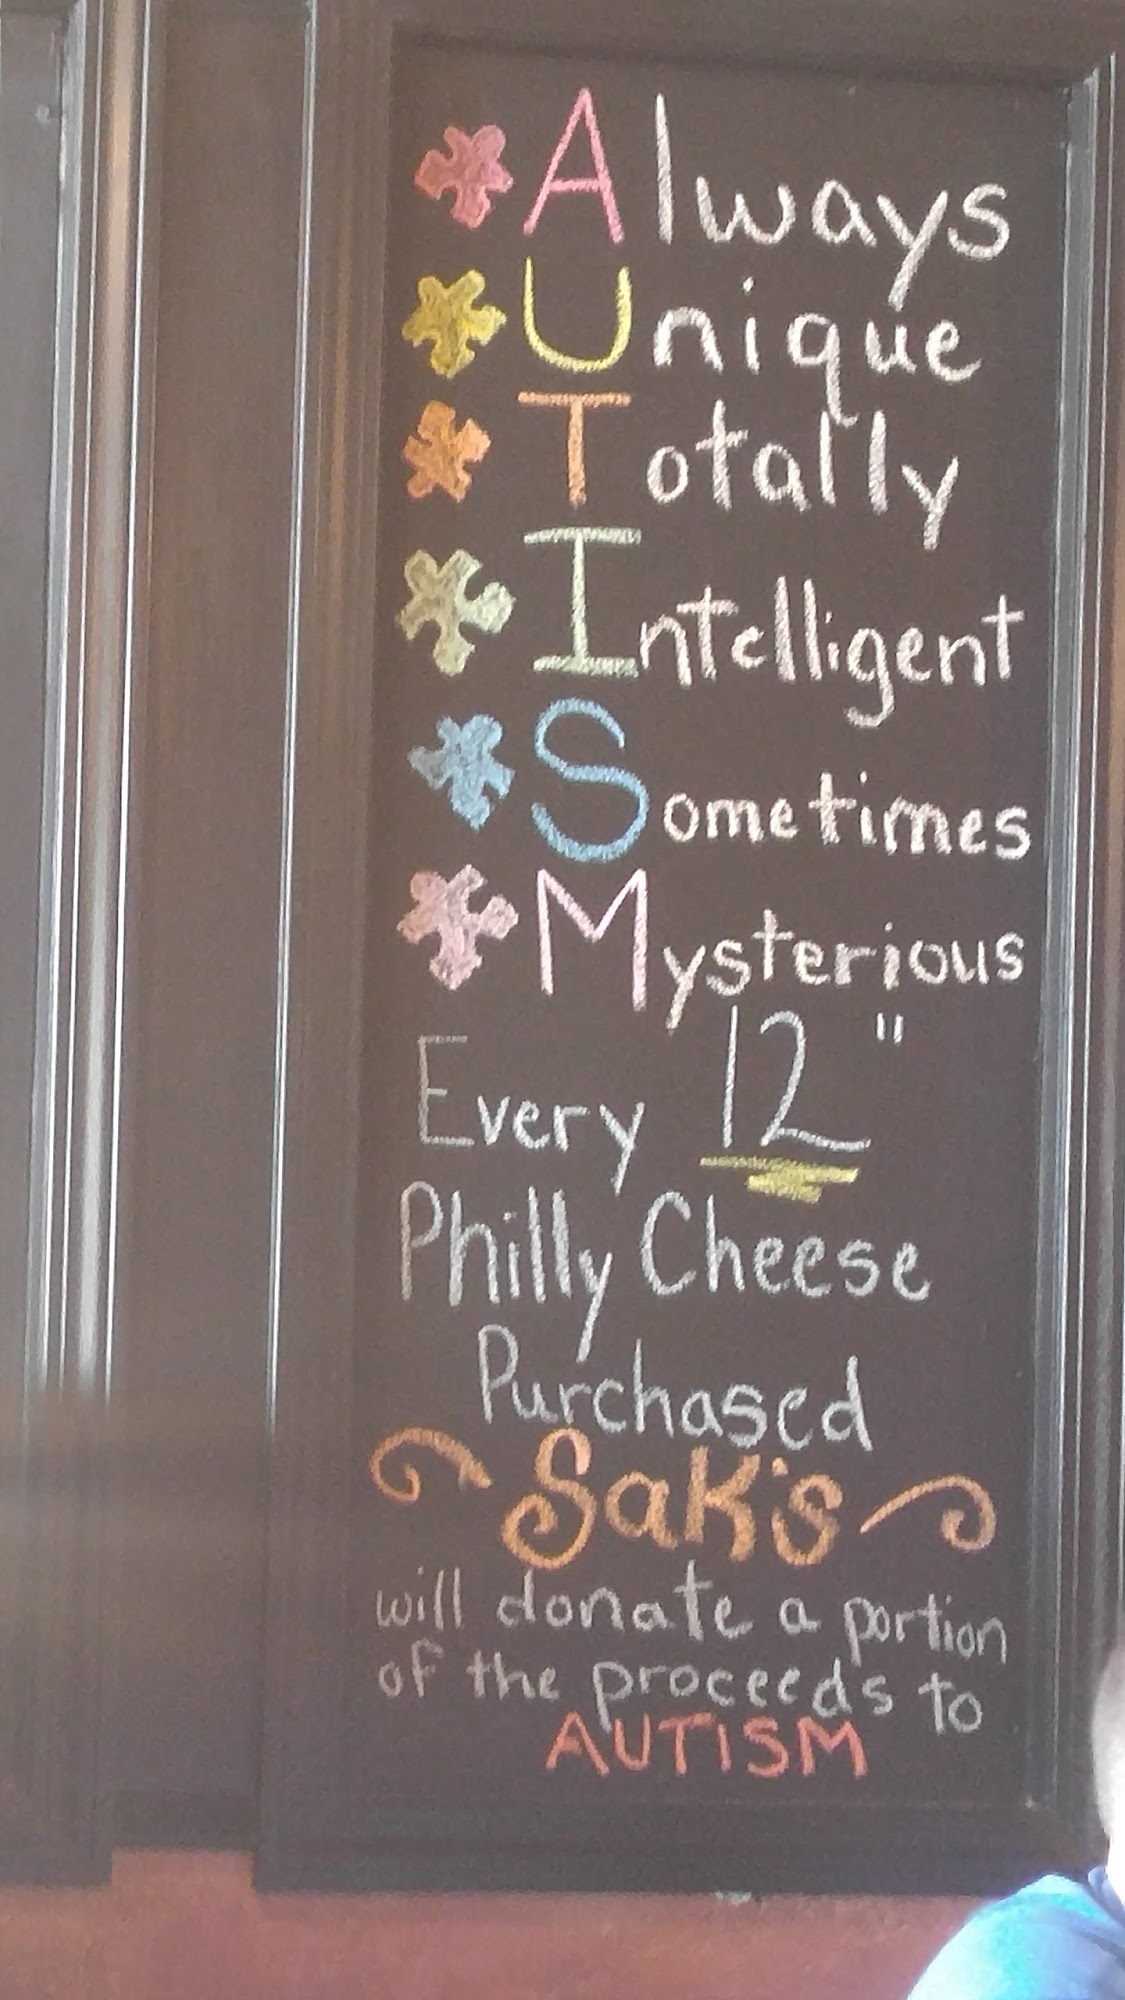 Always
Unique
Totally
Intelligent
Sometimes
Mysterious
Every 12"
Philly Cheese
Purchased
Sak's
will donate a portion
of the proceeds to
AUTISM